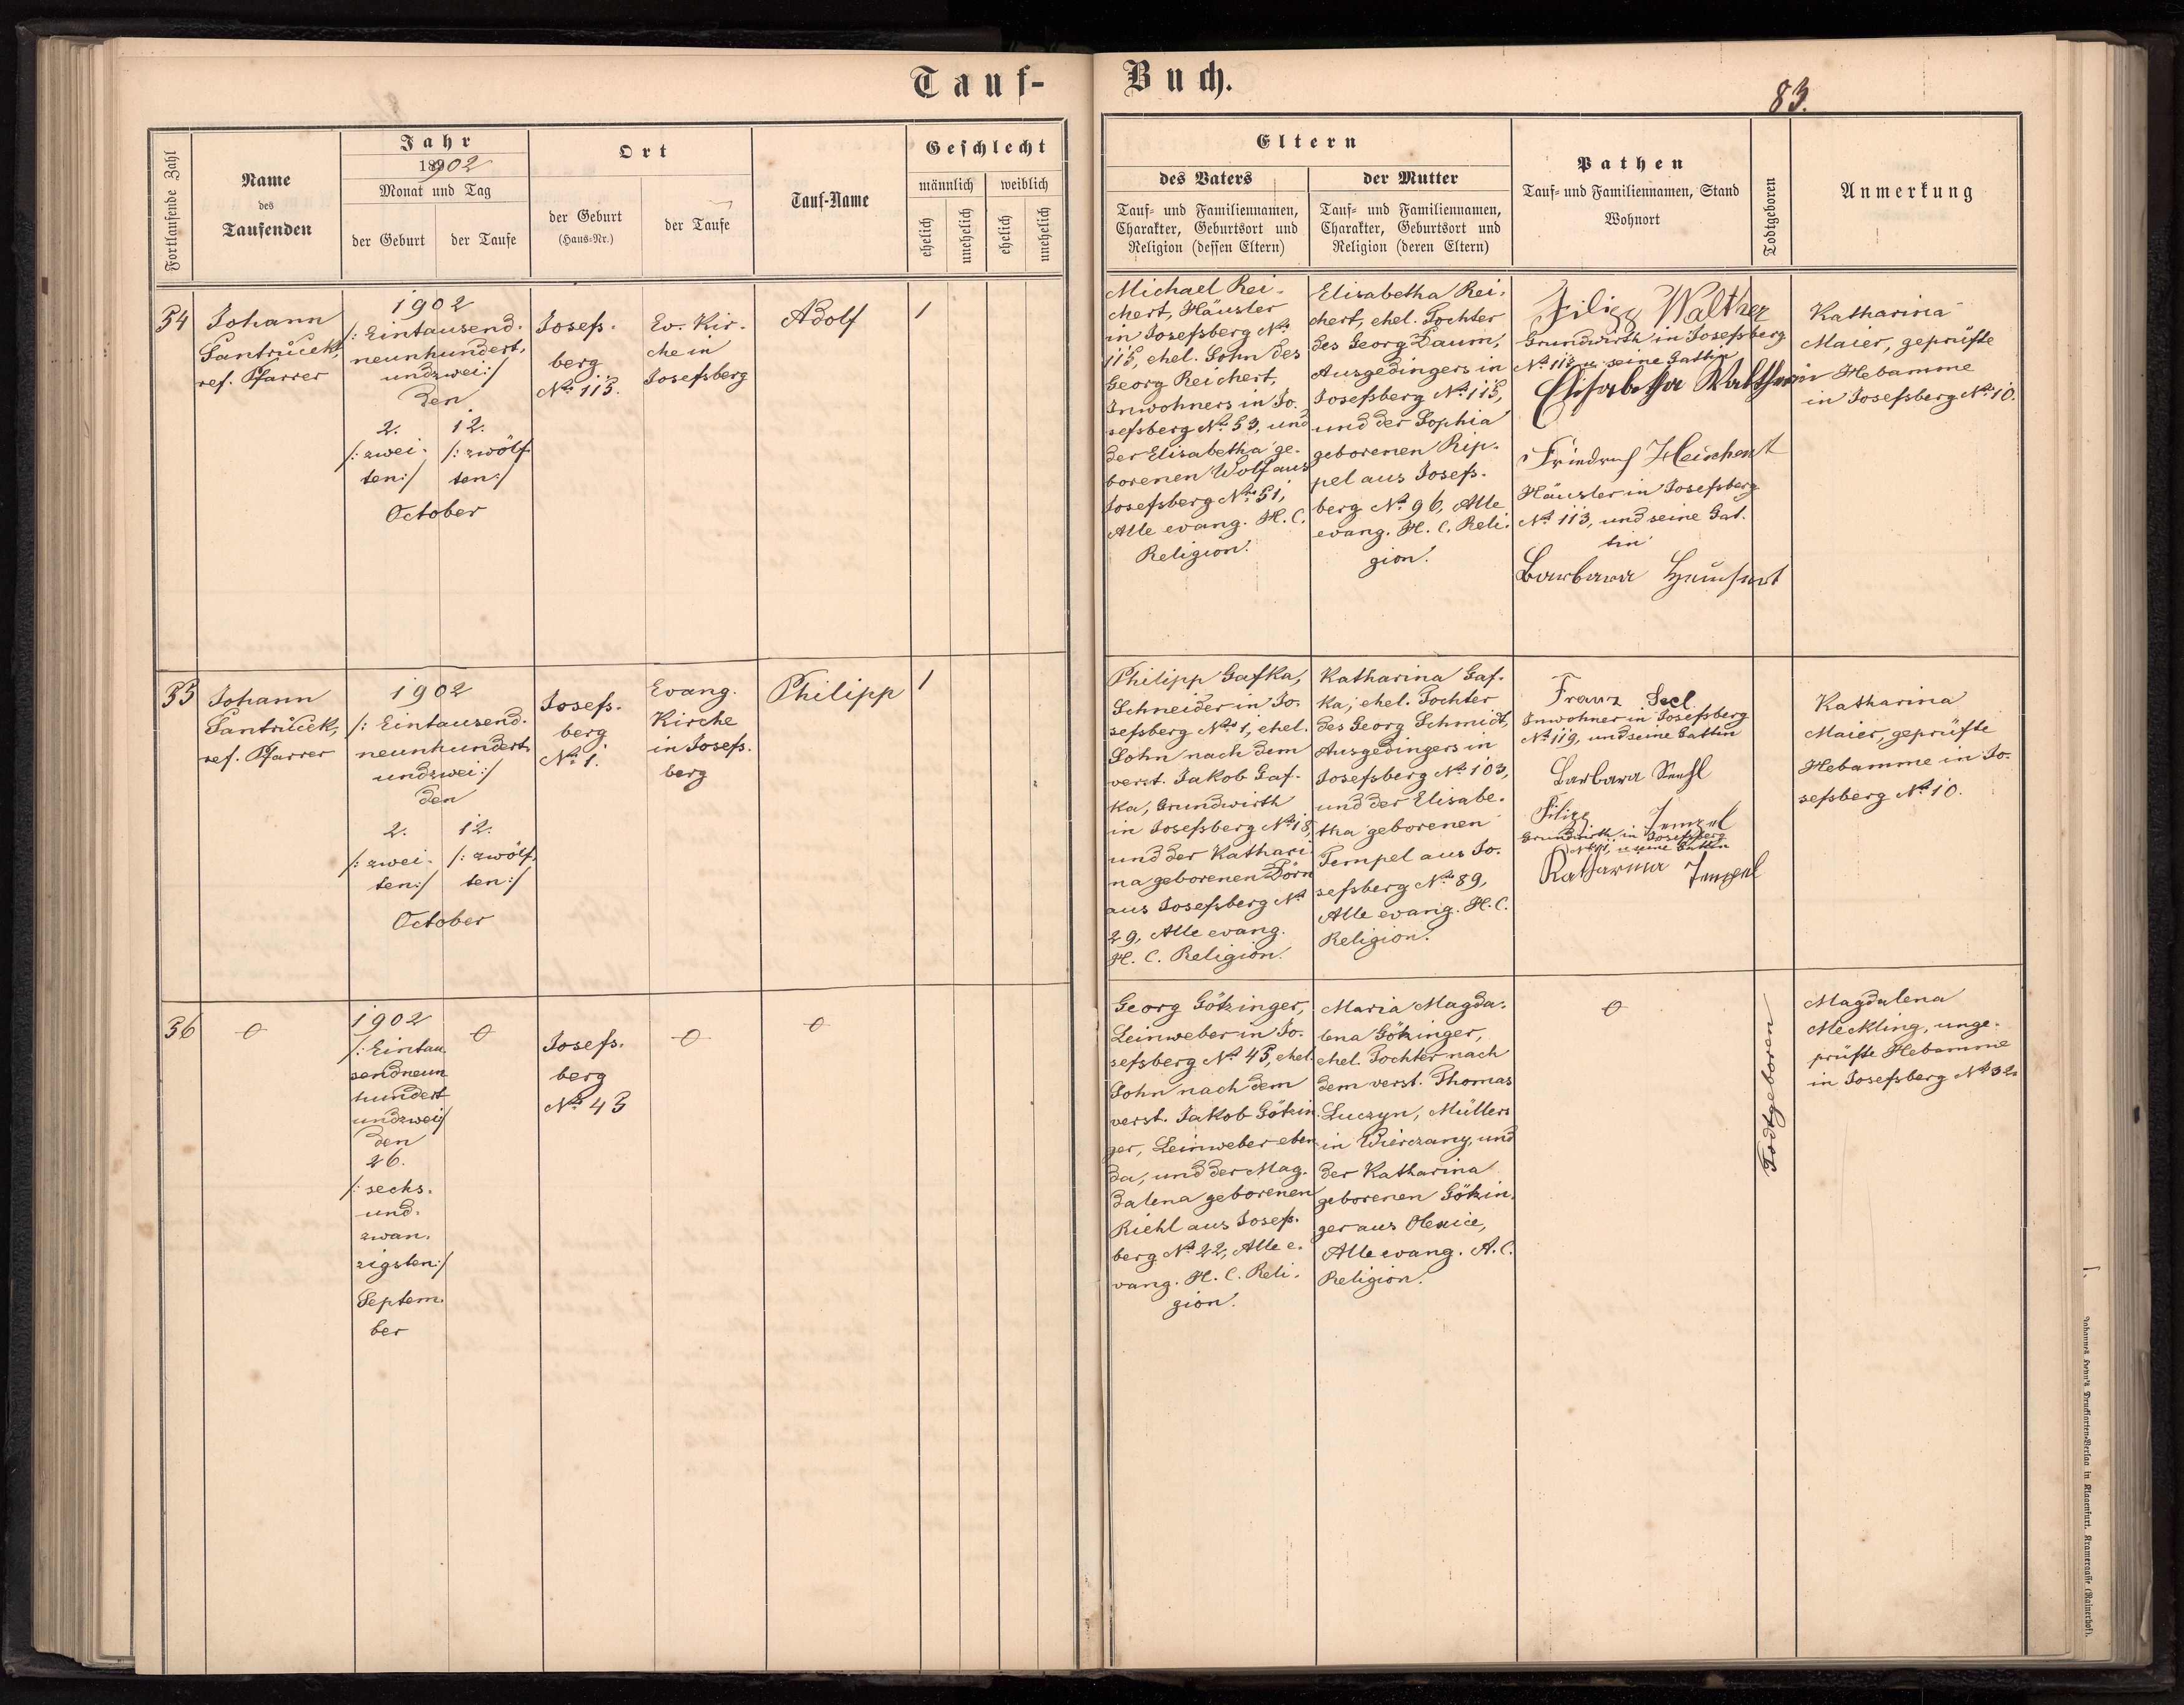 Tauf-
Buch.
83.
Fortlaufende Zahl
Name
des
Taufenden
Jahr
18902
Monat und Tag
der Geburt
der Taufe
Ort
der Geburt
(Haus-Nr.)
der Taufe
Tauf-Name
Geschlecht
männlich
weiblich
ehelich
unehelich
ehelich
unehelich
Eltern
des Vaters
Tauf- und Familiennamen,
Charakter, Geburtsort und
Religion (dessen Eltern)
der Mutter
Tauf- und Familiennamen,
Charakter, Geburtsort und
Religion (deren Eltern)
Pathen
Tauf- und Familiennamen, Stand
Wohnort
Todtgeboren
Anmerkung
54
Johann
Santrůček,
ref. Pfarrer
1902
/: Eintausend-
neunhundert,
undzwei :/
den
2.
/: zwei-
ten :/
12.
/: zwölf-
ten :/
October
Josefs-
berg
No. 115.
Ev. Kir-
che in
Josefsberg
Adolf
1
Michael Rei-
chert, Häusler
in Josefsberg No.
115, ehel. Sohn des
Georg Reichert,
Inwohners in Jo-
sefsberg No. 53, und
der Elisabetha ge-
borenen Wolf aus
Josefsberg No. 51,
Alle evang. H. C.
Religion.
Elisabetha Rei-
chert, ehel. Tochter
des Georg Daum,
Ausgedingers in
Josefsberg No. 115,
und der Sophia
geborenen Rip-
pel aus Josefs-
berg No. 96, Alle
evang. H. C. Reli-
gion.
Filipp Walther
Grundwirth in Josefsberg
No. 118 u. seine Gattin
Elisabetha Waltherin
Friedrich Heuchert
Häusler in Josefsberg
No. 113, und seine Gat-
tin
Barbara Heuchert
Katharina
Maier, geprüfte
Hebamme
in Josefsberg No. 10.
55
Johann
Santrůček,
ref. Pfarrer
1902
/: Eintausend-
neunhundert
undzwei :/
den
2.
/: zwei-
ten :/
12.
/: zwölf-
ten :/
October
Josefs-
berg
No. 1.
Evang.
Kirche
in Josefs-
berg
Philipp
1
Philipp Gafka,
Schneider in Jo-
sefsberg No. 1, ehel.
Sohn nach dem
verst. Jakob Gaf-
ka, Grundwirth
in Josefsberg No. 18,
und der Kathari-
na geborenen Dörn
aus Josefsberg No.
29, Alle evang.
H. C. Religion.
Katharina Gaf-
ka, ehel. Tochter
des Georg Schmidt,
Ausgedingers in
Josefsberg No. 103,
und der Elisabe-
tha geborenen
Tempel aus Jo-
sefsberg No. 89,
Alle evang. H. C.
Religion.
Franz
Inwohner in Josefsberg
No. 119, und seine Gattin
Barbara
Filipp Tempel
Grundwirth in Josefsberg
u. seine Gattin
Katharina Tempel
Katharina
Maier, geprüfte
Hebamme in Jo-
sefsberg No. 10.
56
0
1902
/: Eintau-
sendneun
hundert
undzwei :/
den
26.
/: sechs-
und-
zwan-
zigsten :/
Septem-
ber
0
Josefs-
berg
No. 45
0
0
Georg Götzinger,
Leinweber in Jo-
sefsberg No. 45, ehel.
Sohn nach dem
verst. Jakob Götzin-
ger, Leinweber eben-
da, und der Mag-
dalena geborenen
Riehl aus Josefs-
berg No. 22, Alle e-
vang. H. C. Reli-
gion.
Maria Magda-
lena Götzinger,
ehel. Tochter nach
dem verst. Thomas
Luczyn, Müllers
in Wierczany, und
der Katharina
geborenen Götzin-
ger aus
Alle evang. A. C.
Religion.
0
Todtgeboren
Magdalena
Meckling, unge-
prüfte Hebamme
in Josefsberg No. 32.
Johannes Leon's Drucksorten-Verlag in Klagenfurt, Kramergasse (Rainerhof).